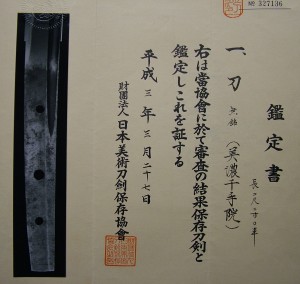 № 327136
鑑定書
一、刀 無銘(美濃千手院)
右は當協會に於て審査の結果保存刀劍と
鑑定しこれを証する
平成三年三月二十七日
財團法人日本美術刀劍保存協會